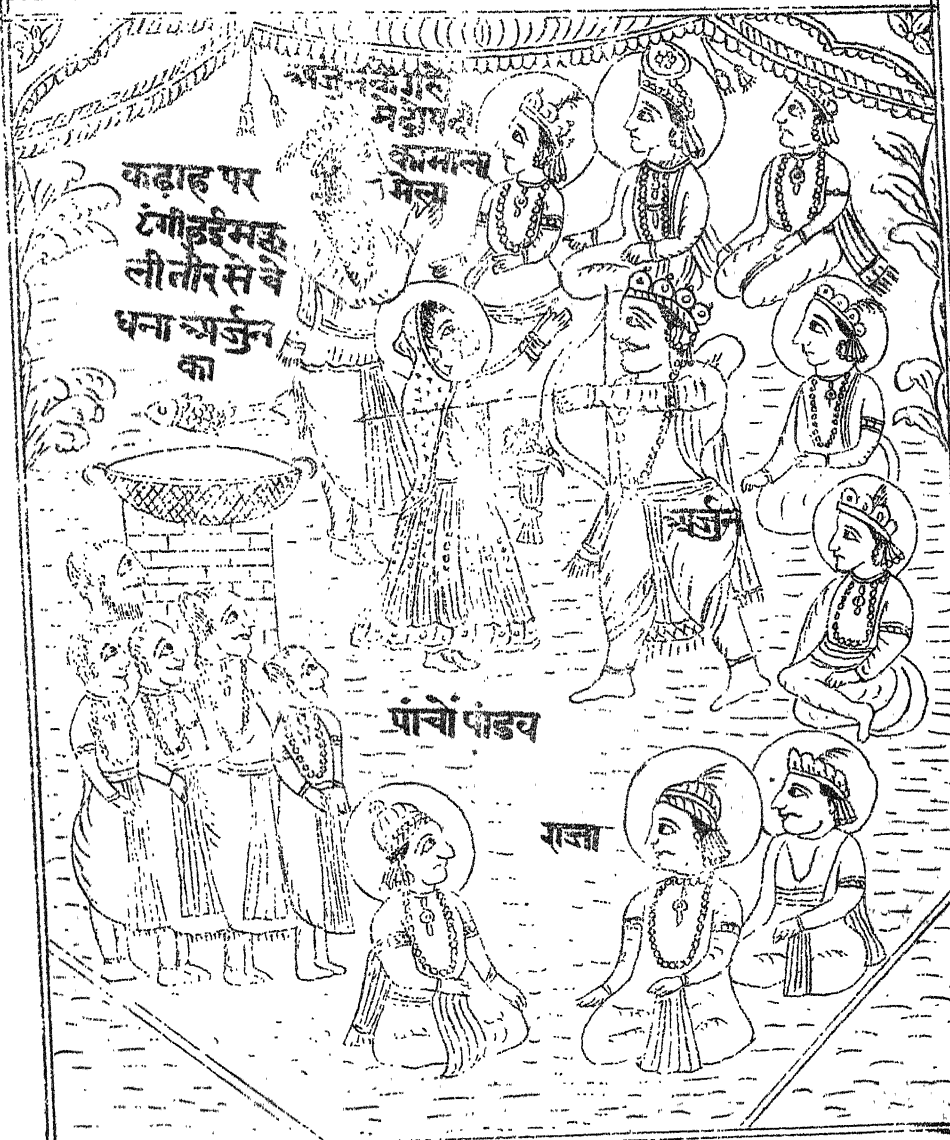 कढ़ाह पर
टंगीहुईमछ
लीतीरसे वे
धना अर्जुन
का
कामाला
मेला
अर्जुन
पांचों पांडव
राजा